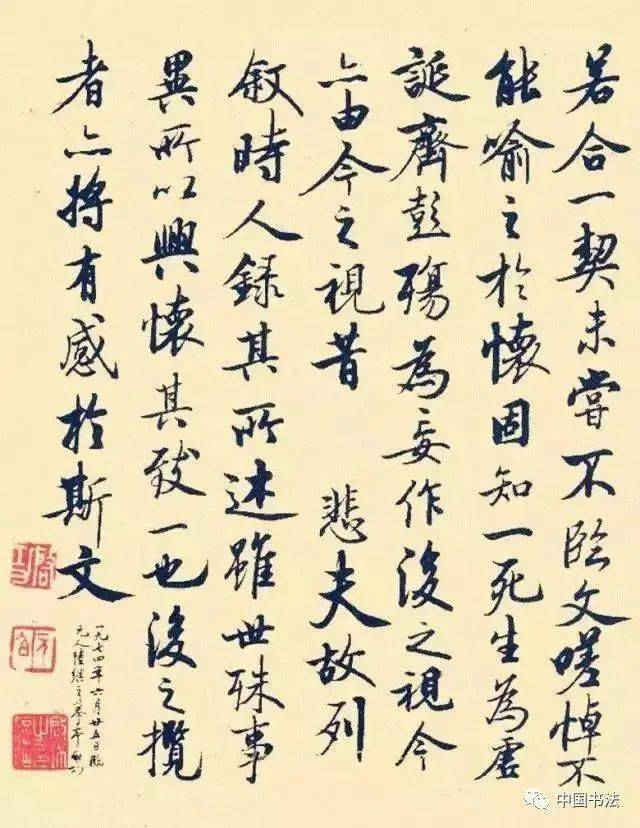 若合一契未嘗不臨文嗟悼不
能喻之於懷固知一死生為虛
誕齊彭殤為妄作後之視今
亦由今之視昔 悲夫故列
敘時人錄其所述雖世殊事
異所以興懷其致一也後之攬
者亦將有感於斯文
一九七四年六月廿五日臨
元人陸繼之摹本 啟功
中国书法